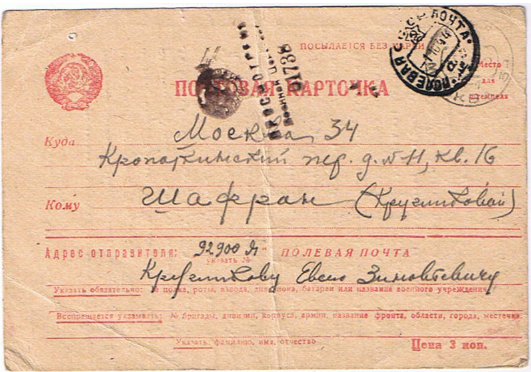 ПОСЫЛАЕТСЯ БЕЗ МАРКИ
ПОЛЕВАЯ ПОЧТА
СССР
Место
для
штемпеля
ПОЧТОВАЯ КАРТОЧКА
ПРОСМОТРЕНО
Военной Цензурой
01738
Куда
Москва 34
Кропоткинский пер. д. N 11, кв. 16
Кому
Шафран (Кругликовой)
Адрес отправителя:
92900 Я
ПОЛЕВАЯ ПОЧТА
Указать №
Кругликову Евсею Зиновьевичу
Указать обязательно: № полка, роты, взвода, дивизиона, батареи или название военного учреждения
Воспрещается указывать: № бригады, дивизии, корпуса, армии, название фронта, области, города, местечка
Указать, фамилию, имя, отчество
Цена 3 коп.